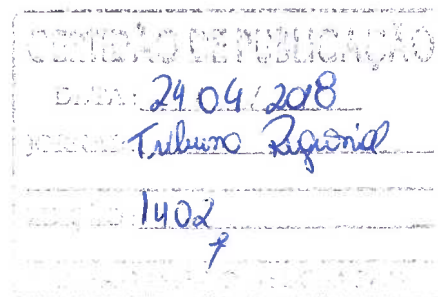 CERTIDÃO DE PUBLICAÇÃO
DATA: 24 04/2018
JORNAL: Tribuna Regional
1402